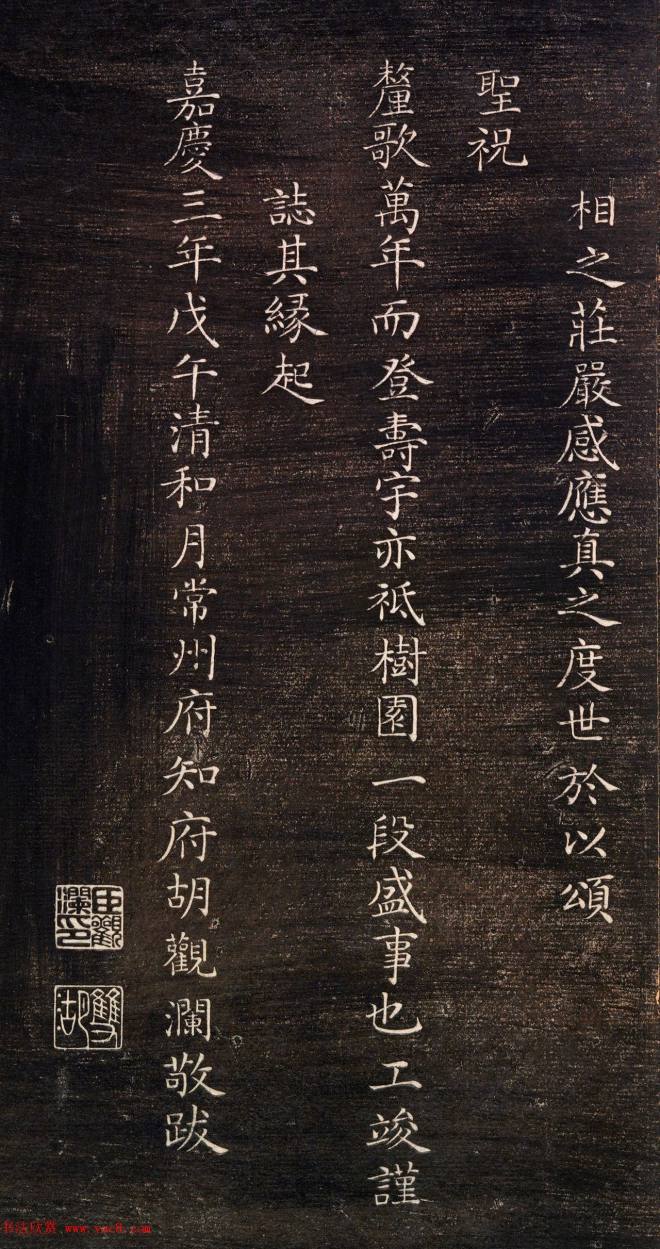 相之莊嚴感應真之度世於以頌
聖祝
釐歌萬年而登壽宇亦祇樹園一段盛事也工竣謹
誌其緣起
嘉慶三年戊午清和月常州府知府胡觀瀾敬跋
觀瀾印
雙湖
书法欣赏 www.yac8.com